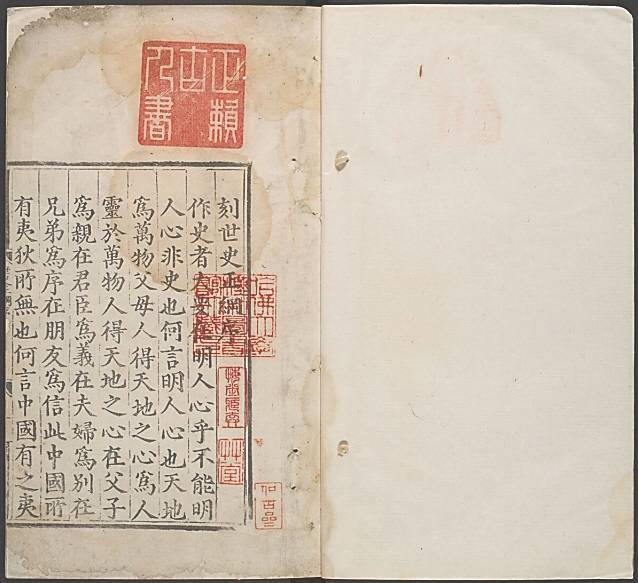 刻世史正綱序
作史者大要在明人心乎不能明
人心非史也何言明人心也天地
爲萬物父母人得天地之心爲人
靈於萬物人得天地之心在父子
爲親在君臣爲義在夫婦爲別在
兄弟爲序在朋友爲信此中國所
有夷狄所無也何言中國有之夷
草堂